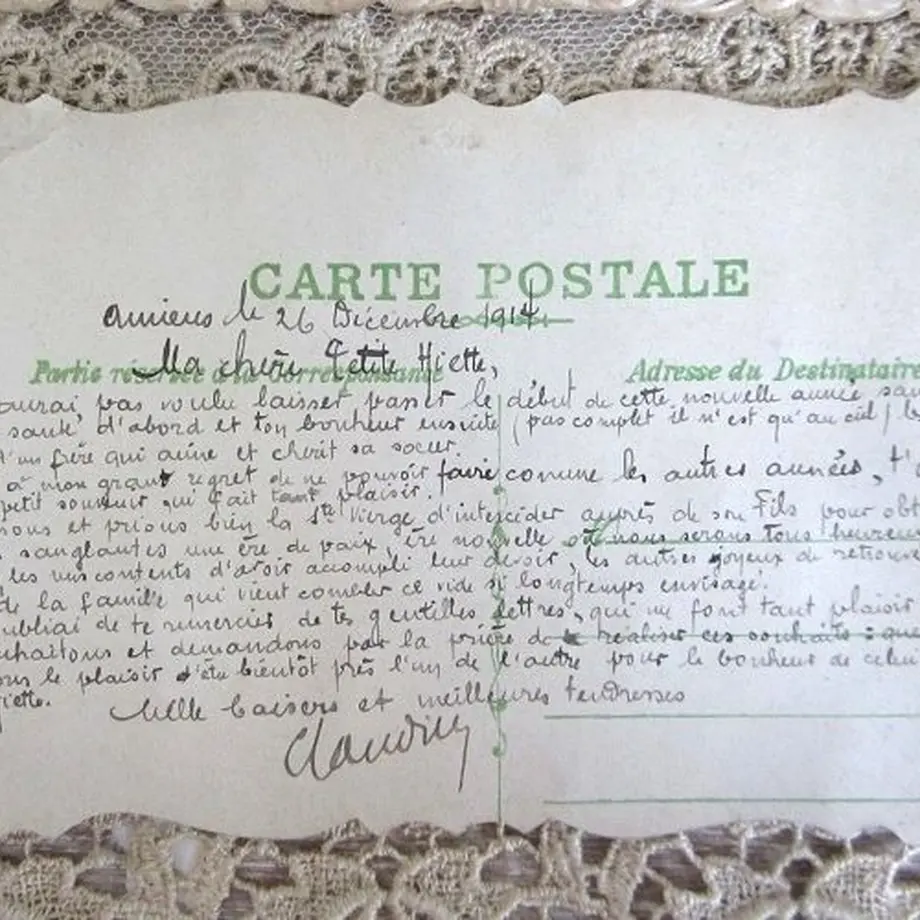 CARTE POSTALE
Amiens le 26 Décembre 1914
Partie réservée à la Correspondance
Adresse du Destinataire
Ma chère Petite Hiette,
aurai pas voulu laisser passer le début de cette nouvelle année sa
santé d'abord et ton bonheur ensuite (pas complet il n'est qu'au ciel)
d'un frère qui aime et chérit sa soeur.
à mon grand regret de ne pouvoir faire comme les autres années, t'
petit souvenir qui fait tant plaisir.
ons et prions bien la Ste Vierge d'intercéder auprès de son Fils pour obt
sanglantes une ère de paix, ère nouvelle où nous serons tous heureux
les uns contents d'avoir accompli leur devoir, les autres joyeux de retrouv
de la famille qui vient combler ce vide si longtemps envisagé.
oubliai de te remercier de tes gentilles lettres, qui me font tant plaisir
ouhaitons et demandons par la prière de réaliser ces souhaits : que
ons le plaisir d'être bientôt près l'un de l'autre pour le bonheur de celui
iette.
Mille baisers et meilleures tendresses